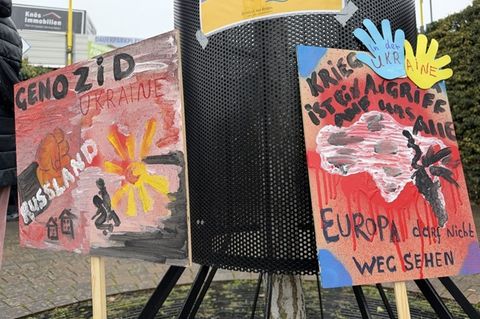 Knös
Immobilien
GENOZID
UKRAINE
RUSSLAND
in der
UKRAINE
KRIEG
IST EIN ANGRIFF
AUF UNS ALLE
EUROPA darf NICHT
WEG SEHEN